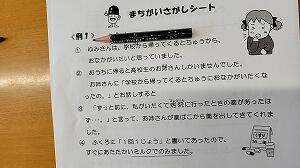 まちがいさがしシート
＜例１＞
① ゆみさんは、学校から帰ってくるとちゅうから、
おなかがいたいと思っていました。
② おうちに帰ると高校生のお姉さんしかいませんでした。
お姉さんに「学校から帰ってくるとちゅうにおなかがいたくな
ったの。」とお話しすると
③ 「ずっと前に、私がいたくて病院に行ったときの薬があったは
ず…。」と言って、お姉さんが薬ばこから薬を出してきてくれま
した。
④ ふくろに「１回１じょう」と書いてあったので、
すぐにあたたかいミルクでのみました。